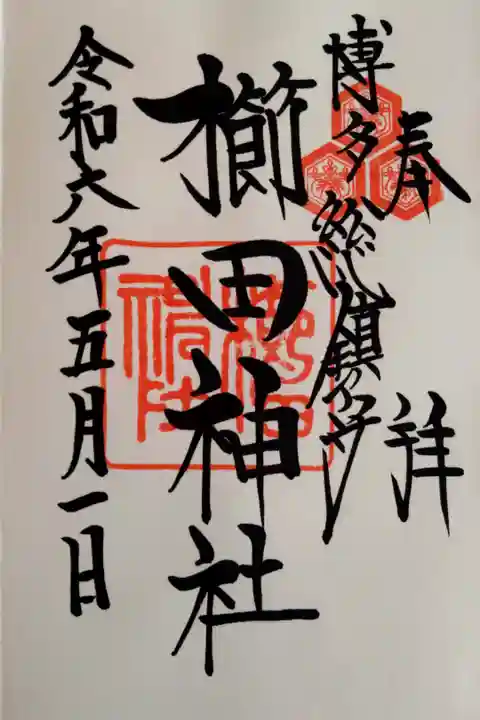 奉拝
博多総鎮守
櫛田神社
令和六年五月一日